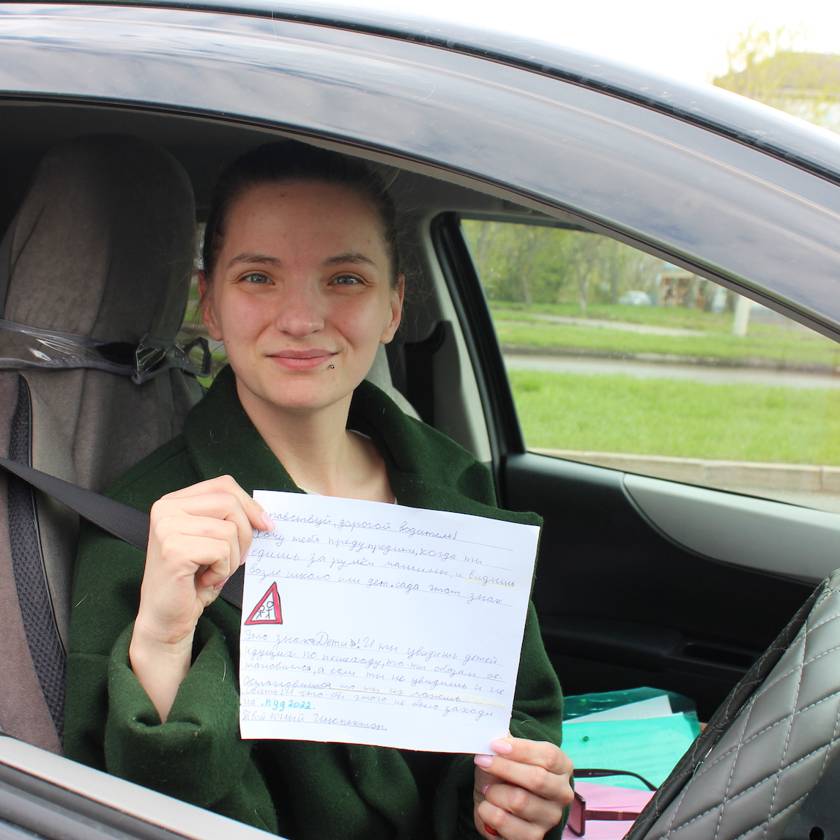 дравствуй, дорогой водитель!
Хочу тебя предупредить, когда ты
едишь за рулём машины, и видишь
возле школы или дет.сада этот знак
Это знак «Дети»! И ты увидишь детей
идущих по пешеходу, то ты обязан ос-
тановится, а если ты не увидишь и не
остановишся то ты их можешь
сбить!!! что-бы этого не было заходи
на МУД2022.
Твой Юный Инспектор.